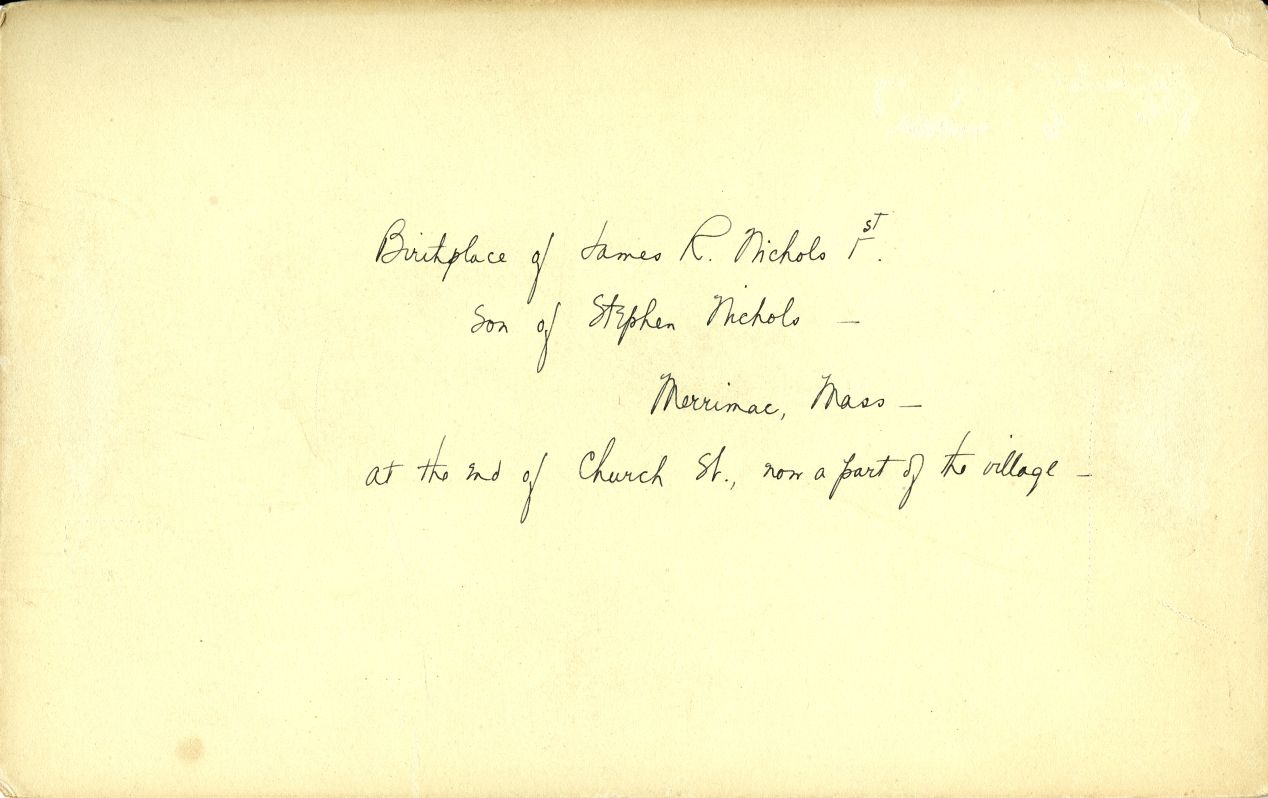 Birthplace of James R. Nichols 1st.
Son of Stephen Nichols —
Merrimac, Mass —
at the end of Church St., now a part of the village —